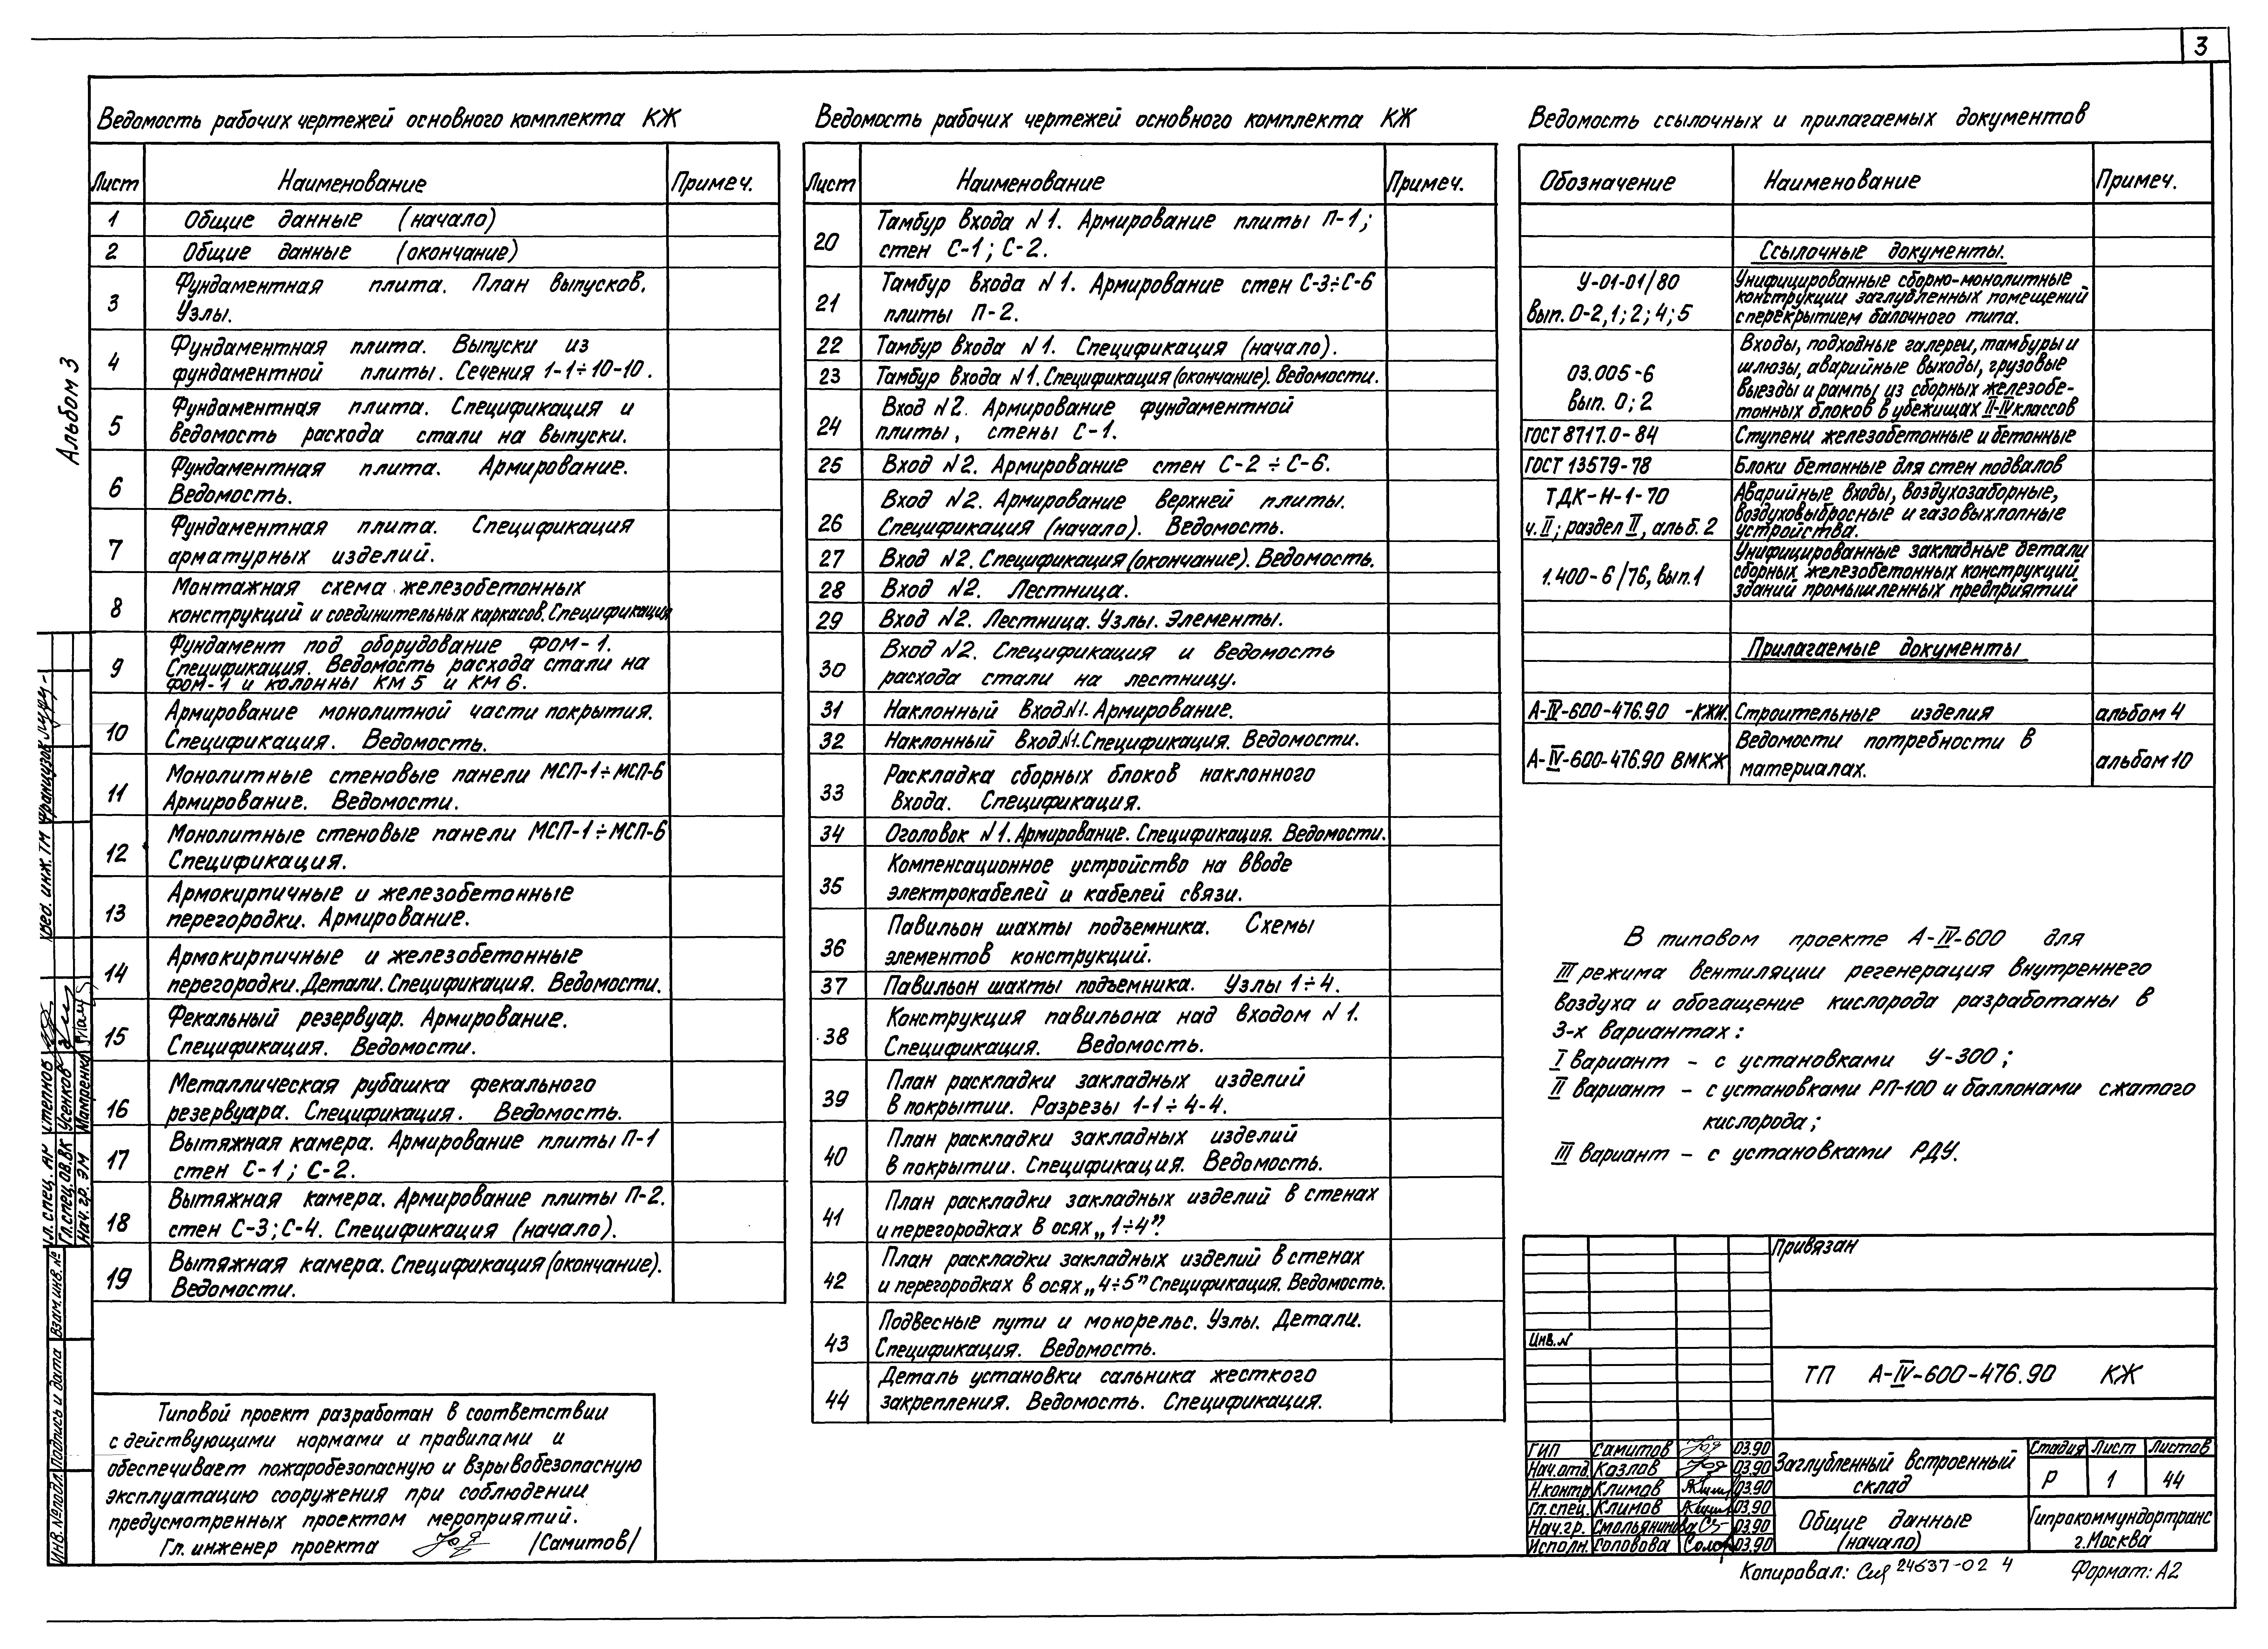 3
Альбом 3
Ведомость рабочих чертежей основного комплекта КЖ
Лист Наименование Примеч.
1 Общие данные (начало)
2 Общие данные (окончание)
3 Фундаментная плита. План выпусков.
Узлы.
4 Фундаментная плита. Выпуски из
фундаментной плиты. Сечения 1-1÷10-10.
5 Фундаментная плита. Спецификация и
ведомость расхода стали на выпуски.
6 Фундаментная плита. Армирование.
Ведомость.
7 Фундаментная плита. Спецификация
арматурных изделий.
8 Монтажная схема железобетонных
конструкций и соединительных каркасов. Спецификация
9 Фундамент под оборудование ФОМ-1.
Спецификация. Ведомость расхода стали на
ФОМ-1 и колонны КМ5 и КМ6.
10 Армирование монолитной части покрытия.
Спецификация. Ведомость.
11 Монолитные стеновые панели МСП-1÷МСП-6
Армирование. Ведомости.
12 Монолитные стеновые панели МСП-1÷МСП-6
Спецификация.
13 Армокирпичные и железобетонные
перегородки. Армирование.
14 Армокирпичные и железобетонные
перегородки. Детали. Спецификация. Ведомости.
15 Фекальный резервуар. Армирование.
Спецификация. Ведомости.
16 Металлическая рубашка фекального
резервуара. Спецификация. Ведомость.
17 Вытяжная камера. Армирование плиты П-1
стен С-1; С-2.
18 Вытяжная камера. Армирование плиты П-2.
стен С-3; С-4. Спецификация (начало).
19 Вытяжная камера. Спецификация (окончание).
Ведомости.
Типовой проект разработан в соответствии
с действующими нормами и правилами и
обеспечивает пожаробезопасную и взрывобезопасную
эксплуатацию сооружения при соблюдении
предусмотренных проектом мероприятий.
Гл. инженер проекта /Самитов/
Ведомость рабочих чертежей основного комплекта КЖ
Лист Наименование Примеч.
20 Тамбур входа N1. Армирование плиты П-1;
стен С-1; С-2.
21 Тамбур входа N1. Армирование стен С-3÷С-6
плиты П-2.
22 Тамбур входа N1. Спецификация (начало).
23 Тамбур входа N1. Спецификация (окончание). Ведомости.
24 Вход N2. Армирование фундаментной
плиты, стены С-1.
25 Вход N2. Армирование стен С-2÷С-6.
26 Вход N2. Армирование верхней плиты.
Спецификация (начало). Ведомость.
27 Вход N2. Спецификация (окончание). Ведомость.
28 Вход N2. Лестница.
29 Вход N2. Лестница. Узлы. Элементы.
30 Вход N2. Спецификация и ведомость
расхода стали на лестницу.
31 Наклонный вход N1. Армирование.
32 Наклонный вход N1. Спецификация. Ведомости.
33 Раскладка сборных блоков наклонного
входа. Спецификация.
34 Оголовок N1. Армирование. Спецификация. Ведомости.
35 Компенсационное устройство на вводе
электрокабелей и кабелей связи.
36 Павильон шахты подъемника. Схемы
элементов конструкций.
37 Павильон шахты подъемника. Узлы 1÷4.
38 Конструкция павильона над входом N1.
Спецификация. Ведомость.
39 План раскладки закладных изделий
в покрытии. Разрезы 1-1÷4-4.
40 План раскладки закладных изделий
в покрытии. Спецификация. Ведомость.
41 План раскладки закладных изделий в стенах
и перегородках в осях „1÷4”.
42 План раскладки закладных изделий в стенах
и перегородках в осях „4÷5” Спецификация. Ведомость.
43 Подвесные пути и монорельс. Узлы. Детали.
Спецификация. Ведомость.
44 Деталь установки сальника жесткого
закрепления. Ведомость. Спецификация.
Ведомость ссылочных и прилагаемых документов
Обозначение Наименование Примеч.
Ссылочные документы.
У-01-01/80 Унифицированные сборно-монолитные
конструкции заглубленных помещений
вып. 0-2,1; 2; 4; 5 с перекрытием балочного типа.
Входы, подходные галереи, тамбуры и
03.005-6 шлюзы, аварийные выходы, грузовые
въезды и рампы из сборных железобе-
вып. 0; 2 тонных блоков в убежищах II-IV классов
ГОСТ 8717.0-84 Ступени железобетонные и бетонные
ГОСТ 13579-78 Блоки бетонные для стен подвалов
ТДК-Н-1-70 Аварийные входы, воздухозаборные,
воздуховыбросные и газовыхлопные
ч. II; раздел II, альб. 2 устройства.
Унифицированные закладные детали
1.400-6/76, вып.1 сборных железобетонных конструкций
зданий промышленных предприятий
Прилагаемые документы
А-IV-600-476.90 -КЖИ. Строительные изделия альбом 4
А-IV-600-476.90 ВМКЖ Ведомости потребности в
материалах. альбом 10
В типовом проекте А-IV-600 для
III режима вентиляции регенерация внутреннего
воздуха и обогащение кислорода разработаны в
3-х вариантах:
I вариант - с установками У-300;
II вариант - с установками РП-100 и баллонами сжатого
кислорода;
III вариант - с установками РДУ.
Привязан
Инв. N
ТП А-IV-600-476.90 КЖ
ГИП Самитов 03.90
Нач.отд. Казлов 03.90
Н.контр Климов 03.90
Гл.спец. Климов 03.90
Нач.гр. Смольянинова 03.90
Исполн. Соловова 03.90
Заглубленный встроенный
склад
Стадия Лист Листов
Р 1 44
Общие данные
(начало)
Гипрокоммундортранс
г.Москва
Копировал: 24637-02 4 Формат: А2
Вед. инж. ТМ Французов
Гл. спец. АН Степнов
Гл.спец. ОВ.ВК Усенков
Нач. гр. ЭМ
Инв. № подл. Подпись и дата Взам. инв. №